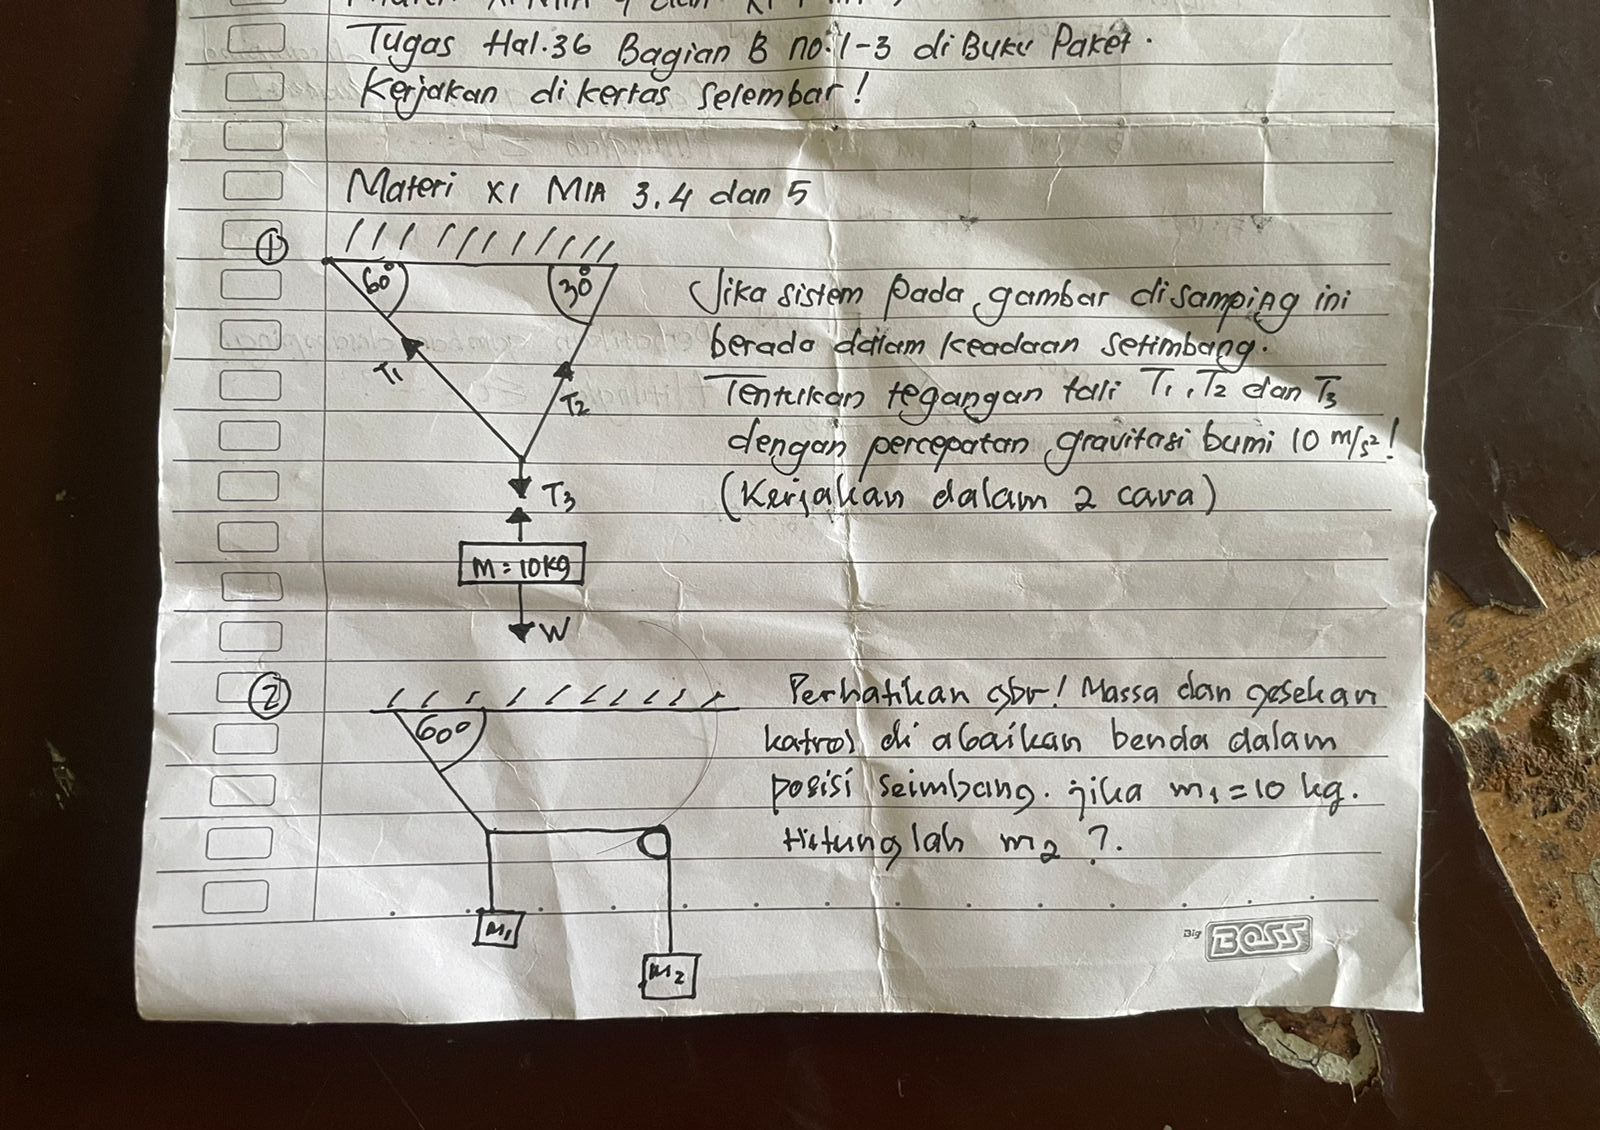 Tugas Hal.36 Bagian B no.1-3 di Buku Paket.
Kerjakan di kertas selembar!
Materi XI MIA 3.4 dan 5
1
60°
30°
Jika sistem pada gambar disamping ini
berada dalam keadaan setimbang.
T1
T2
Tentukan tegangan tali T1, T2 dan T3
dengan percepatan gravitasi bumi 10 m/s²!
T3
(Kerjakan dalam 2 cara)
M = 10kg
W
2
Perhatikan gbr! Massa dan gesekan
60°
katrol di abaikan benda dalam
posisi seimbang. jika m1 = 10 kg.
Hitunglah m2 ?.
M1
M2
Big BOSS